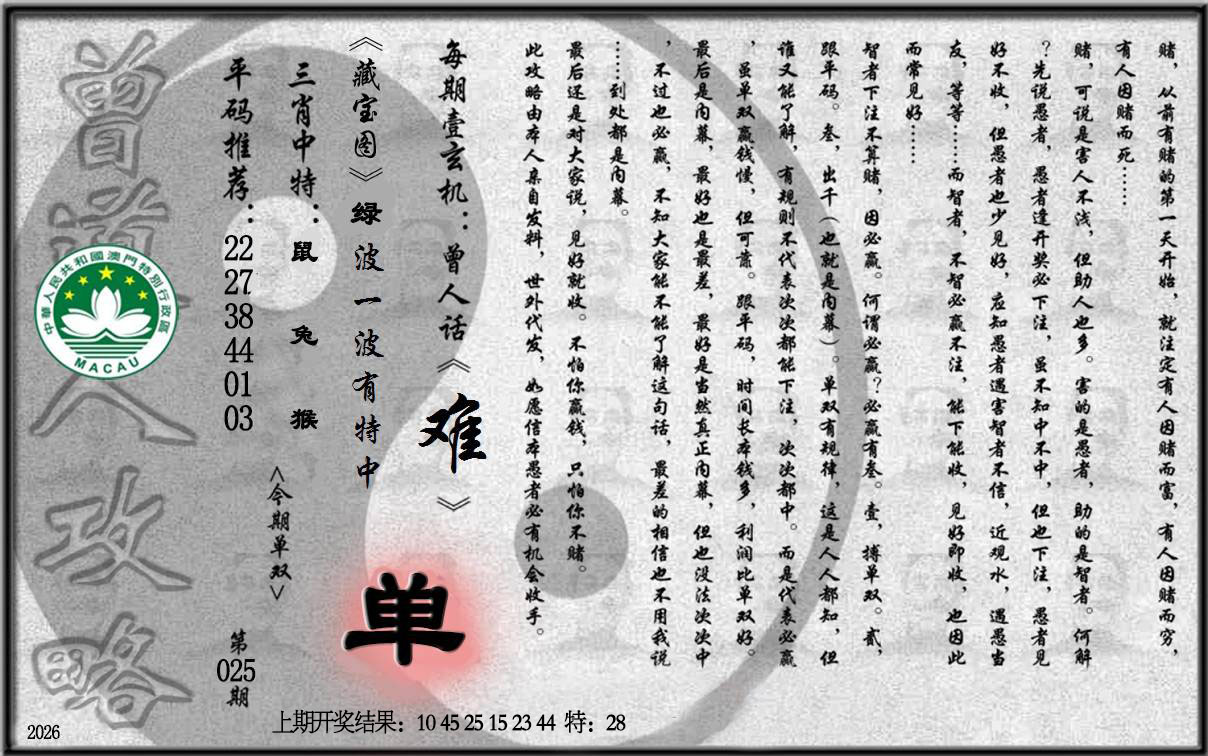 赌，从前有赌的第一天开始，就注定有人因赌而富，有人因赌而穷，
有人因赌而死……
赌，可说是害人不浅，但助人也多。害的是愚者，助的是智者。何解
？先说愚者，愚者逢开奖必下注，虽不知中不中，但也下注，愚者见
好不收，但愚者也少见好，应知愚者遇害智者不信，近观水，遇愚当
友，等等……而智者，不智必赢不注，能下能收，见好即收，也因此
而常见好……
智者下注不算赌，因必赢。何谓必赢？必赢有叁。壹，搏单双。贰，
跟平码。叁，出千（也就是内幕）。单双有规律，这是人人都知，但
谁又能了解，有规则不代表次次都能下注，次次都中。而是代表必赢
，虽单双赢钱慢，但可靠。跟平码，时间长本钱多，利润比单双好。
最后是内幕，最好也是最差，最好是当然真正内幕，但也没法次次中
，不过也必赢，不知大家能不能了解这句话，最差的相信也不用我说
……到处都是内幕。
最后还是对大家说，见好就收。不怕你赢钱，只怕你不赌。
此攻略由本人亲自发料，世外代发，如愿信本愚者必有机会收手。
每期壹玄机：曾人话《难》
《藏宝图》绿波一波有特中
三肖中特：鼠 兔 猴
<今期单双>
单
平码推荐：22 27 38 44 01 03
第025期
曾道人攻略
中華人民共和國澳門特別行政區
MACAU
上期开奖结果：10 45 25 15 23 44 特：28
2026